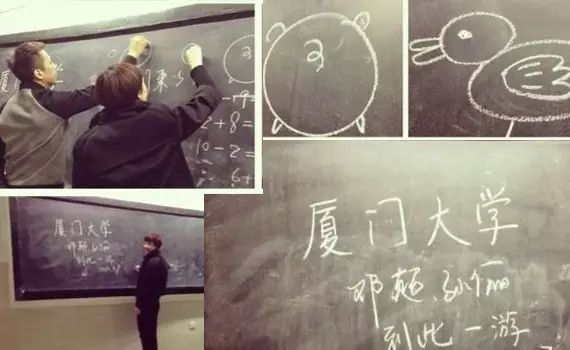 厦 学
来少
2+8=
10-2=
6+
厦门大学
邓超 孙俪
到此一游
厦门大学
邓超.孙俪
到此一游